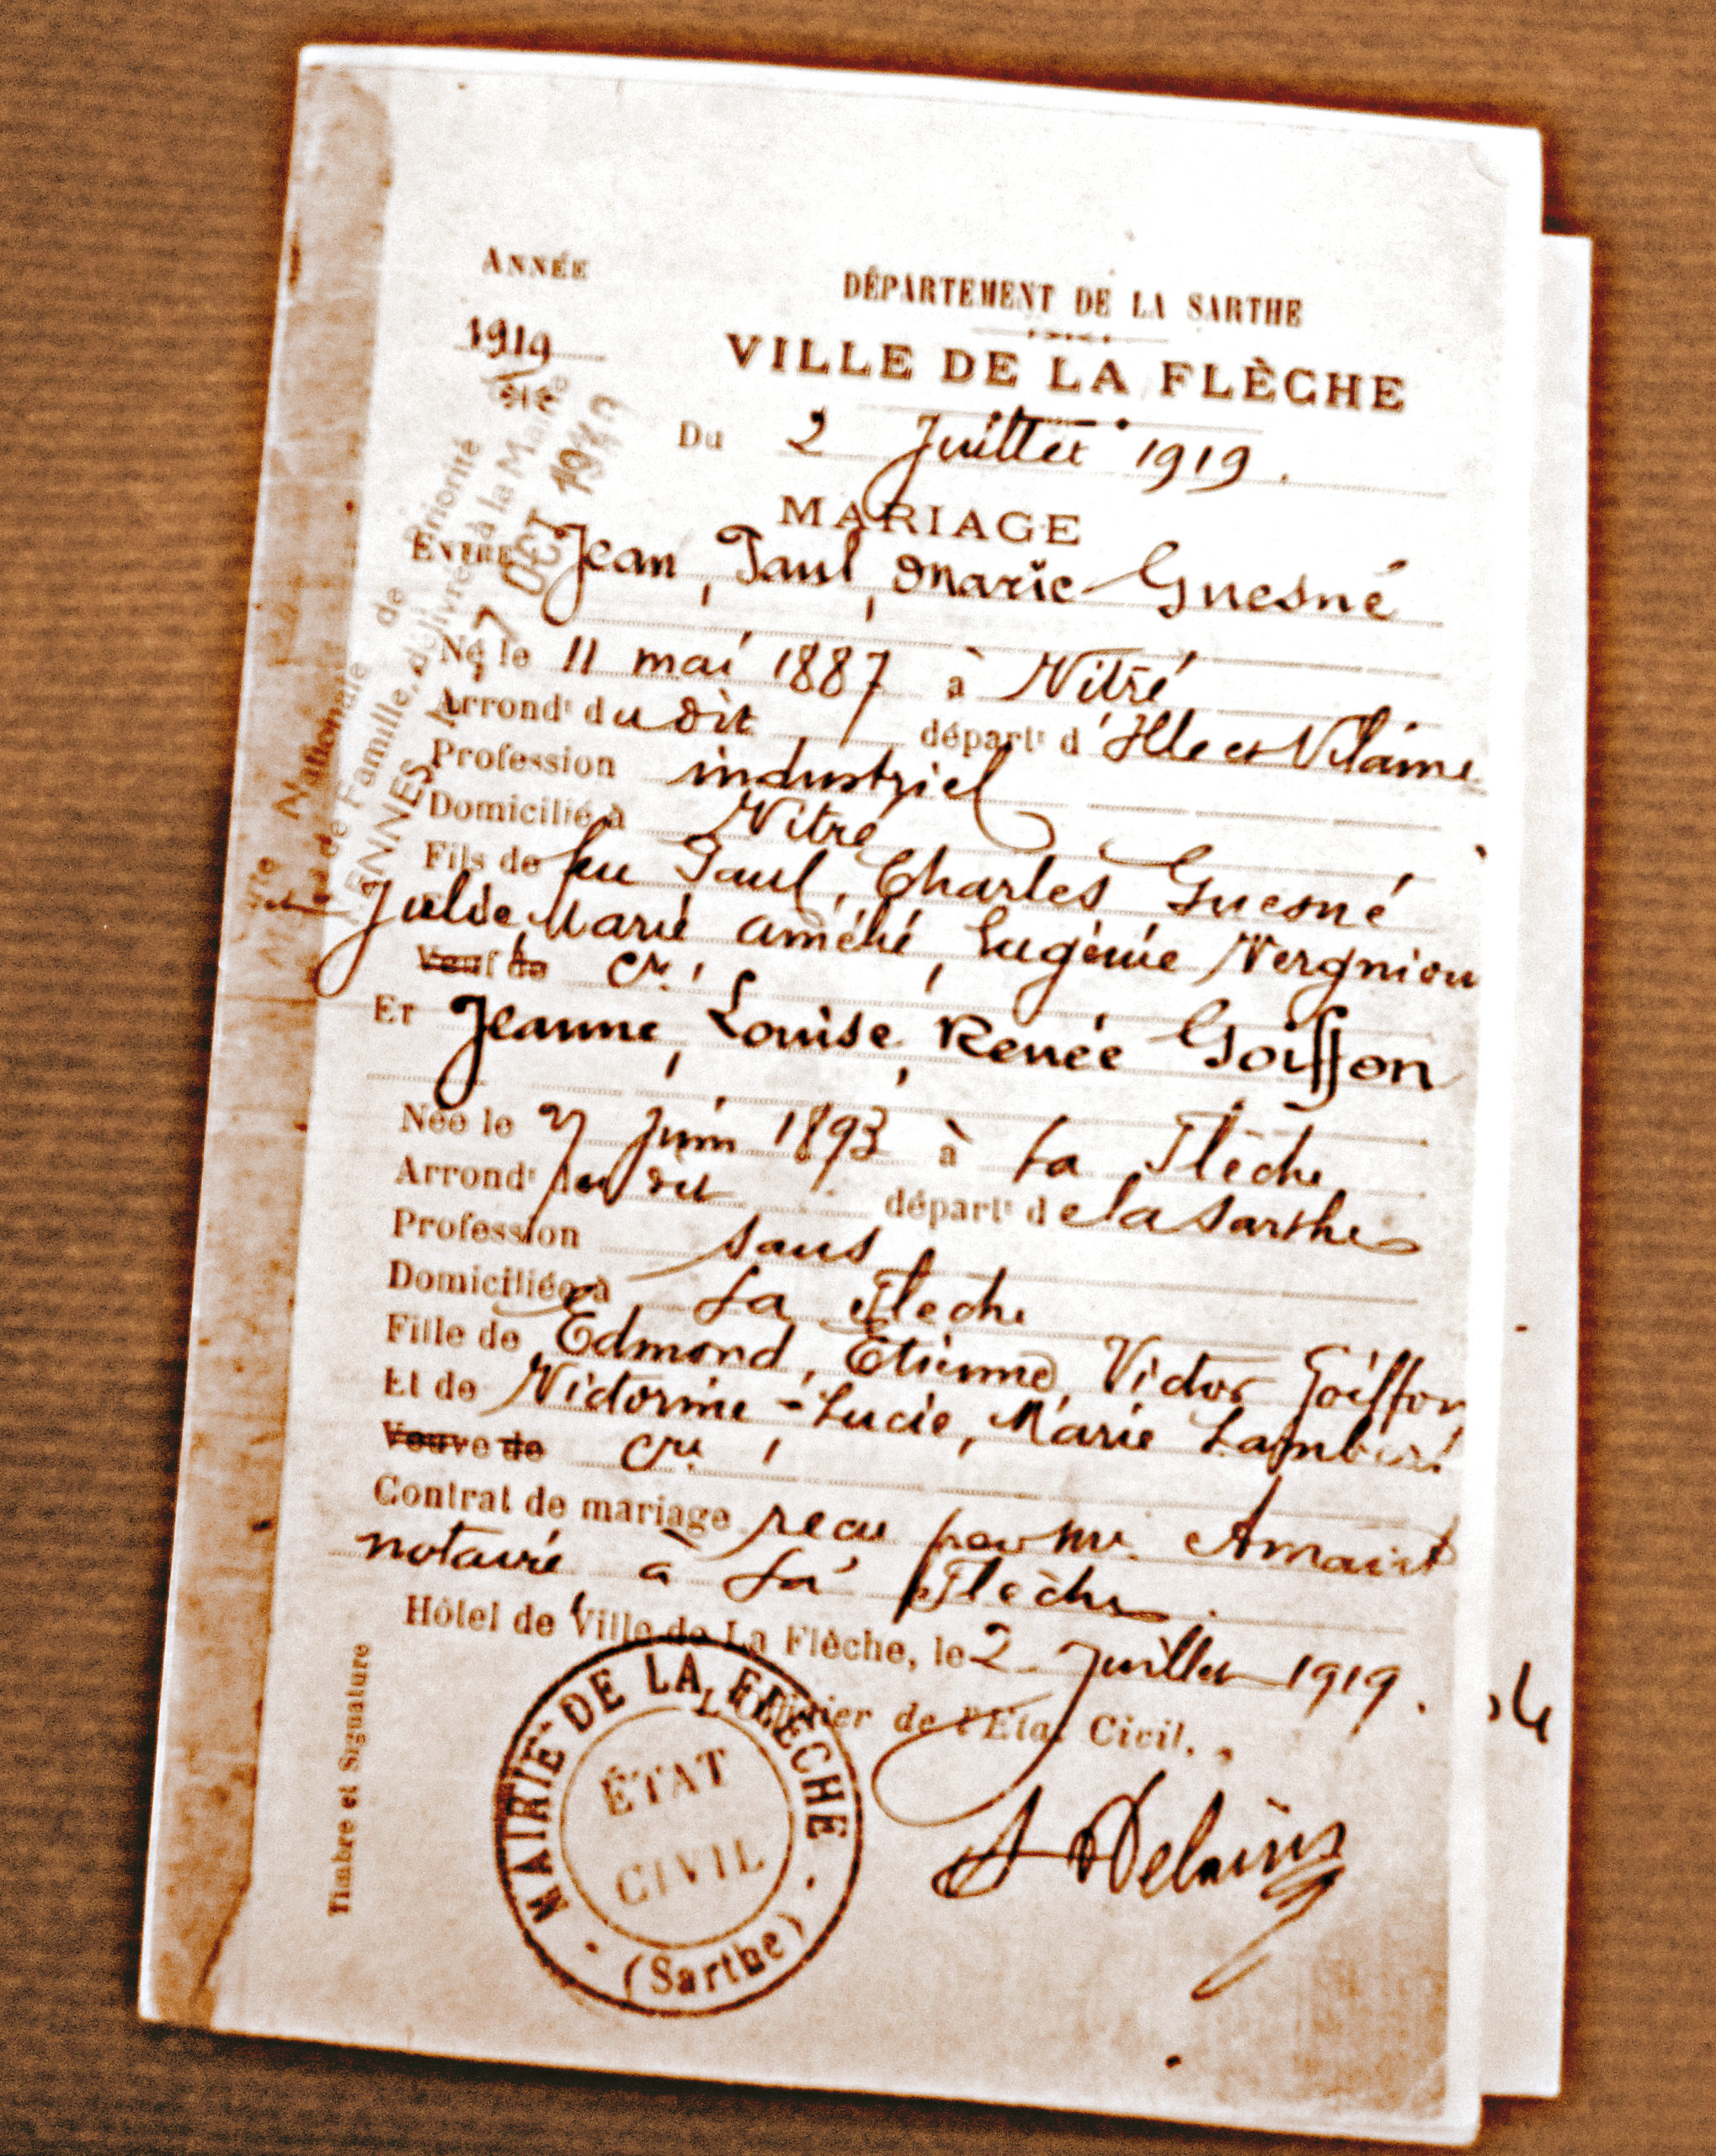 ANNÉE
DÉPARTEMENT DE LA SARTHE
1919
VILLE DE LA FLÈCHE
Du 2 Juillet 1919.
MARIAGE
ENTRE Jean, Paul, Marie Guesné
Né le 11 mai 1887 à Vitré
Arrondt du dit départt d'Ille et Vilaine
Profession industriel
Domicilié à Vitré
Fils de feu Paul, Charles Guesné
Julie, Marie Amélie, Eugénie Vergniou
Veuf de
ET Jeanne, Louise, Renée Goiffon
Née le 27 Juin 1893 à La Flèche
Arrondt du dit départt de la Sarthe
Profession sans
Domiciliée à La Flèche
Fille de Edmond, Etienne, Victor Goiffon
Et de Victorine-Lucie, Marie Lambert
Veuve de
Contrat de mariage reçu par Me
notaire à La Flèche.
Hôtel de Ville de La Flèche, le 2 Juillet 1919.
L'Officier de l'État Civil,
Timbre et Signature
MAIRIE DE LA FLÈCHE
ÉTAT
CIVIL
(Sarthe)
Nationale de Priorité
de Famille, délivrée à la Mairie
RENNES, le 7 OCT